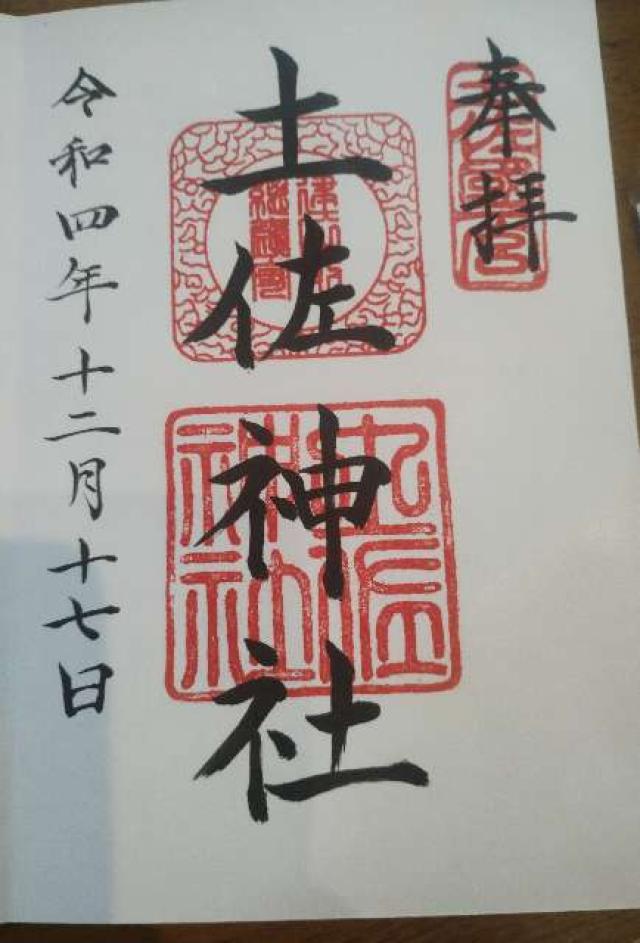 奉拝
土佐神社
令和四年十二月十七日
土佐
神社